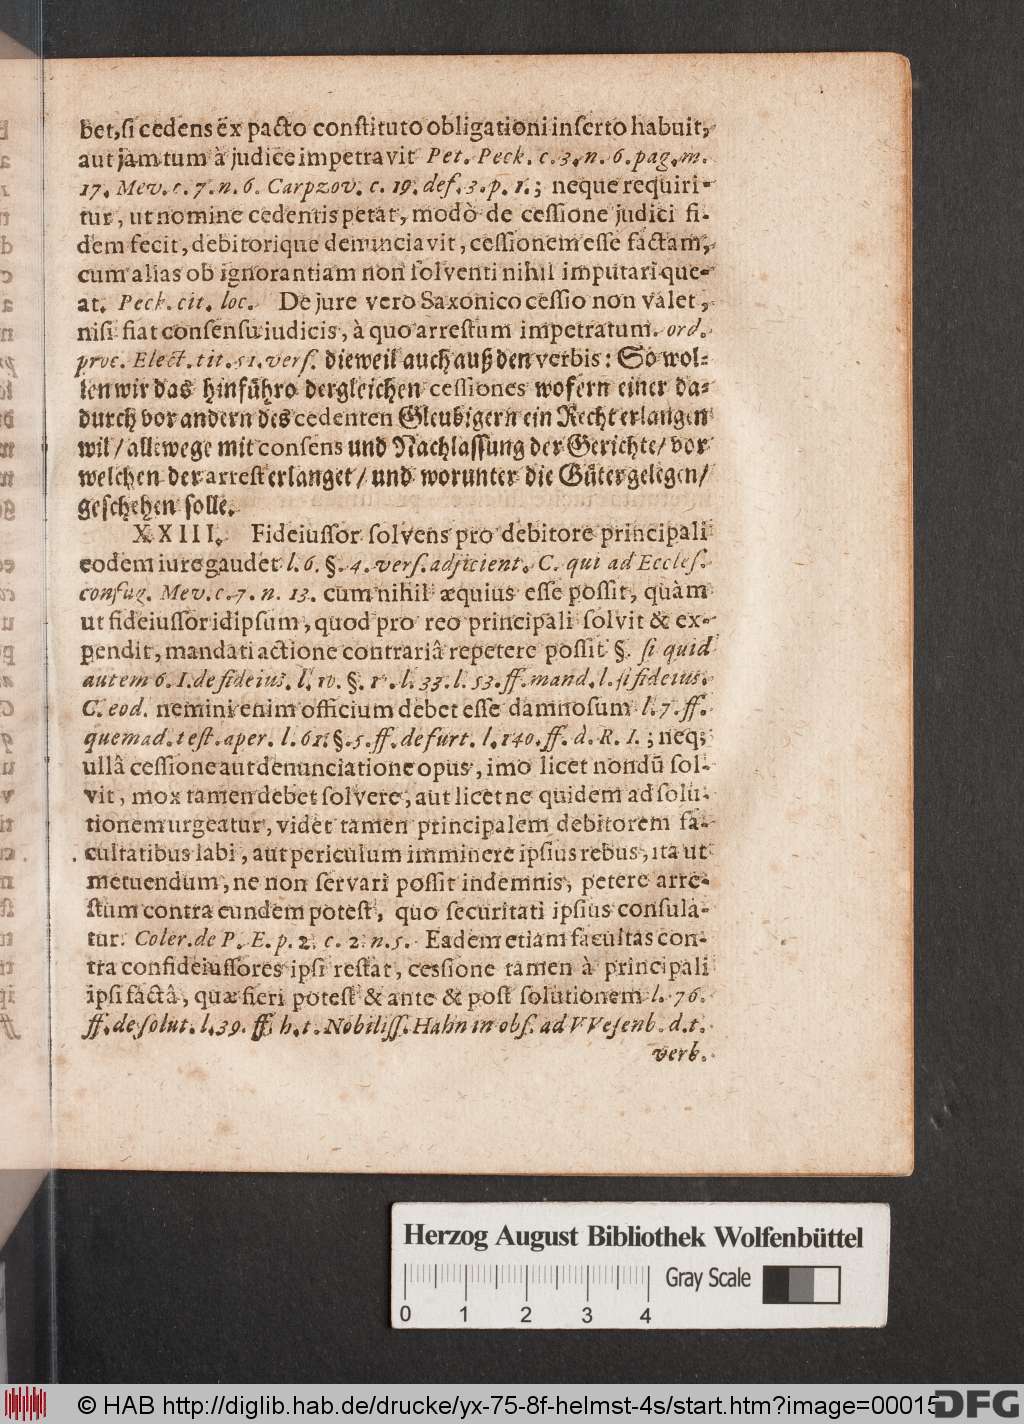 bet, si cedens ex pacto constituto obligationi inserto habuit,
aut jam tum à judice impetravit Pet. Peck. c. 3. n. 6. pag. m.
17. Mev. c. 7. n. 6. Carpzov. c. 19. def. 3. p. 1.; neque requiri-
tur, ut nomine cedentis petat, modò de cessione judici fi-
dem fecit, debitorique denunciavit, cessionem esse factam,
cum alias ob ignorantiam non solventi nihil imputari que-
at. Peck. cit. loc. De jure vero Saxonico cessio non valet,
nisi fiat consensu iudicis, à quo arrestum impetratum. ord.
proc. Elect. tit. 51. vers. dieweil auch auß den verbis: So wol-
len wir das hinführo dergleichen cessiones wofern einer da-
durch vor andern des cedenten Gleubigern ein Recht erlangen
wil / allewege mit consens und Nachlassung der Gerichte / vor
welchen der arrest erlanget / und worunter die Güter gelegen /
geschehen solle.
XXIII. Fideiussor solvens pro debitore principali
eodem iure gaudet l. 6. §. 4. vers. adjicient. C. qui ad Eccles.
confug. Mev. c. 7. n. 13. cum nihil æquius esse possit, quàm
ut fideiussor idipsum, quod pro reo principali solvit & ex-
pendit, mandati actione contrariâ repetere possit §. si quid
autem 6. I. de fideius. l. 10. §. 1. l. 33. l. 53. ff. mand. l. si fideius.
C. eod. nemini enim officium debet esse damnosum l. 7. ff.
quemad. test. aper. l. 61. §. 5. ff. de furt. l. 140. ff. d. R. I.; neq;
ullâ cessione aut denunciatione opus, imo licet nondū sol-
vit, mox tamen debet solvere, aut licet ne quidem ad solu-
tionem urgeatur, videt tamen principalem debitorem fa-
cultatibus labi, aut periculum imminere ipsius rebus, ita ut
metuendum, ne non servari possit indemnis, petere arre-
stum contra eundem potest, quo securitati ipsius consula-
tur. Coler. de P. E. p. 2. c. 2. n. 5. Eadem etiam facultas con-
tra confideiussores ipsi restat, cessione tamen à principali
ipsi factâ, quæ fieri potest & ante & post solutionem l. 76.
ff. de solut. l. 39. ff. h. t. Nobiliss. Hahn in obs. ad VVesenb. d. t.
verb.
Herzog August Bibliothek Wolfenbüttel
Gray Scale
0 1 2 3 4
© HAB http://diglib.hab.de/drucke/yx-75-8f-helmst-4s/start.htm?image=00015
DFG